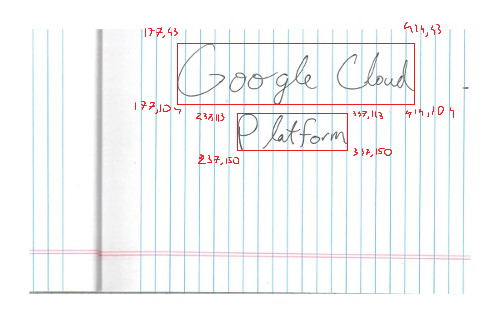 177,43 414,43
Google Cloud
177,104 237,113 337,113 414,104
Platform
237,150 337,150